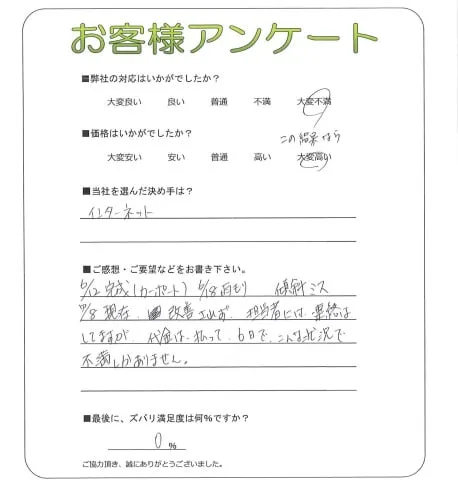 お客様アンケート
■弊社の対応はいかがでしたか？
大変良い 良い 普通 不満 大変不満
この結果なら
■価格はいかがでしたか？
大変安い 安い 普通 高い 大変高い
■当社を選んだ決め手は？
インターネット
■ご感想・ご要望などをお書き下さい。
6/12 完成(カーポート) 6/18 雨もり 傾斜ミス
/8 現在、改善されず、担当者には、連絡は
してますが、代金は、払って、6日で、こんな状況で
不満しかありません。
■最後に、ズバリ満足度は何%ですか？
0 %
ご協力頂き、誠にありがとうございました。